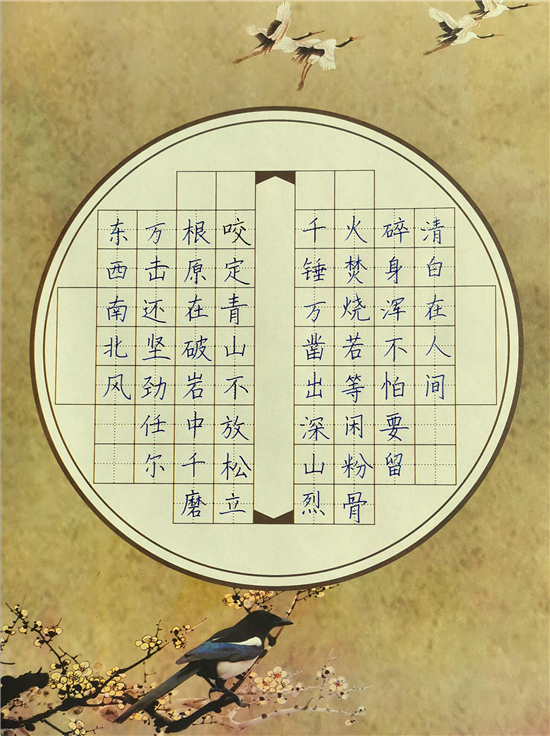 千锤万凿出深山烈
火焚烧若等闲粉骨
碎身浑不怕要留
清白在人间
咬定青山不放松立
根原在破岩中千磨
万击还坚劲任尔
东西南北风